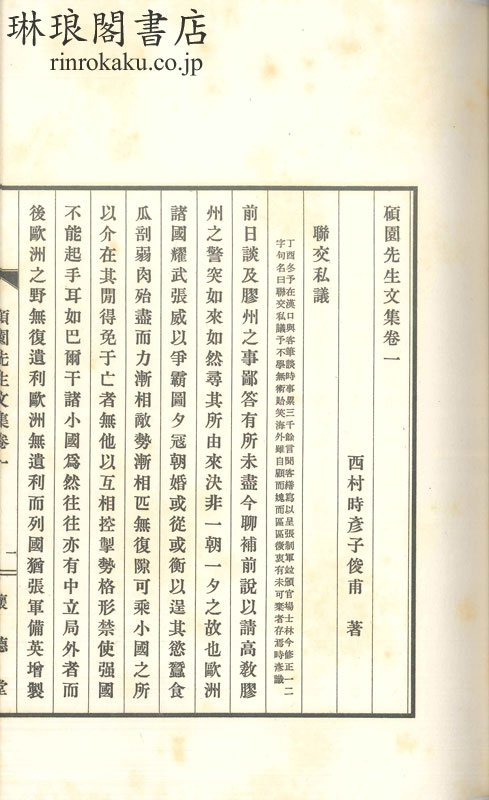 琳琅閣書店
rinrokaku.co.jp
碩園先生文集卷一
西村時彥子俊甫　著
聯交私議
丁酉冬予在漢口與客筆談時事累三千餘言聞客繕寫以呈張制軍竝頒官場士林今修正一二
字句名曰聯交私議予不學無術貽笑海外雖自顧而媿而區區微衷有未可棄者存焉時彥識
前日談及膠州之事鄙答有所未盡今聊補前說以請高敎膠
州之警突如來如然尋其所由來決非一朝一夕之故也歐洲
諸國耀武張威以爭霸圖夕寇朝婚或從或衡以逞其慾蠶食
瓜剖弱肉殆盡而力漸相敵勢漸相匹無復隙可乘小國之所
以介在其閒得免于亡者無他以互相控掣勢格形禁使强國
不能起手耳如巴爾干諸小國爲然往往亦有中立局外者而
後歐洲之野無復遺利歐洲無遺利而列國猶張軍備英增製
碩園先生文集卷一
一
懷德堂